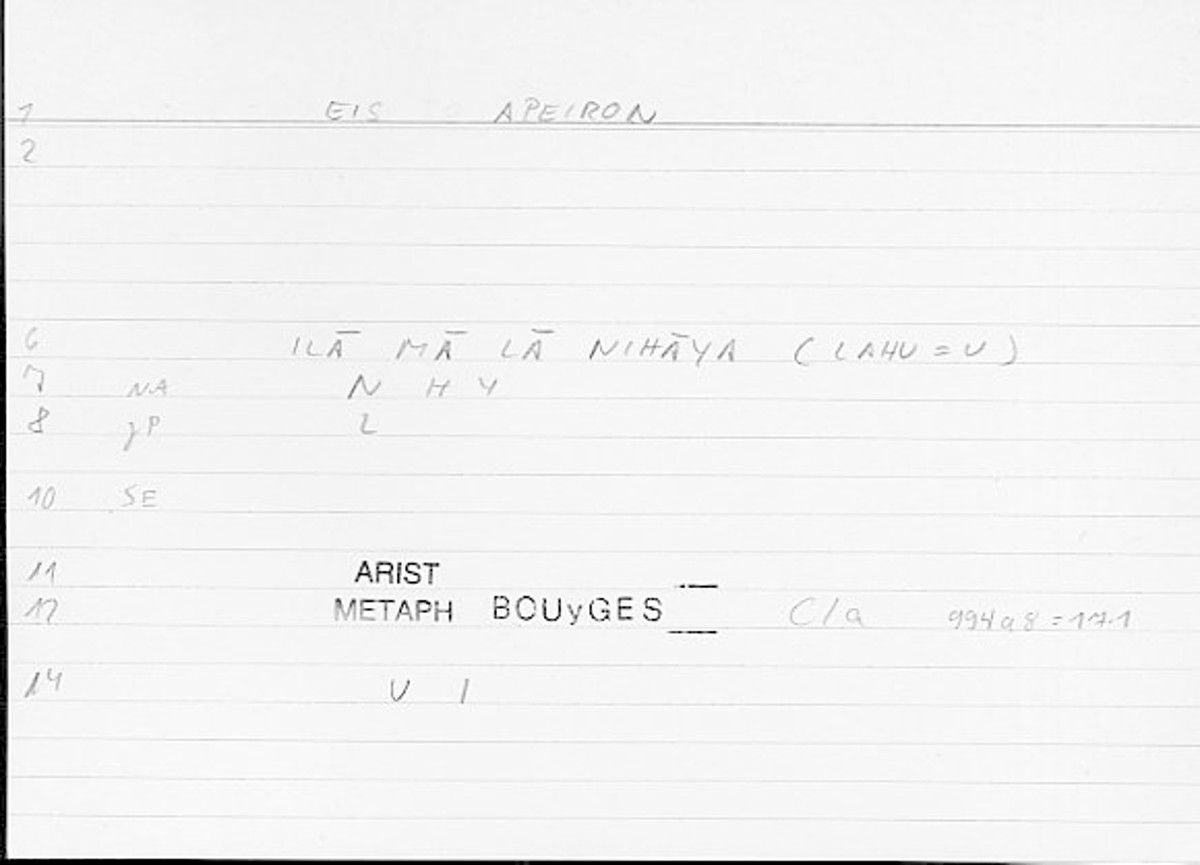 1 EIS APEIRON
2
6 ILĀ MĀ LĀ NIHĀYA (LAHU = U)
7 NA N H Y
8 JP L
10 SE
11 ARIST
12 METAPH BOUyGES C/a 994a8 = 17.1
14 U I